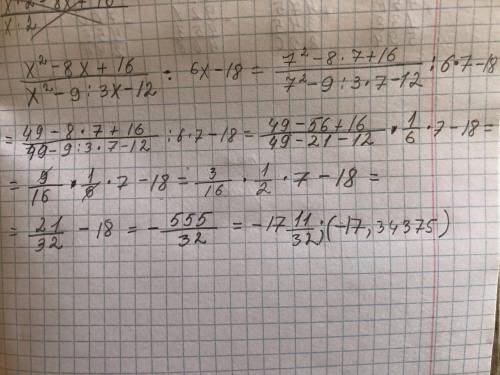 x² - 8x + 10
x : 2
(x² - 8x + 16)/(x² - 9 : 3x - 12) : 6x - 18 = (7² - 8 · 7 + 16)/(7² - 9 : 3 · 7 - 12) : 6 · 7 - 18
= (49 - 8 · 7 + 16)/(49 - 9 : 3 · 7 - 12) : 6 · 7 - 18 = (49 - 56 + 16)/(49 - 21 - 12) · 1/6 · 7 - 18 =
= 9/16 · 1/6 · 7 - 18 = 3/16 · 1/2 · 7 - 18 =
= 21/32 - 18 = - 555/32 = -17 11/32 ; (-17,34375)